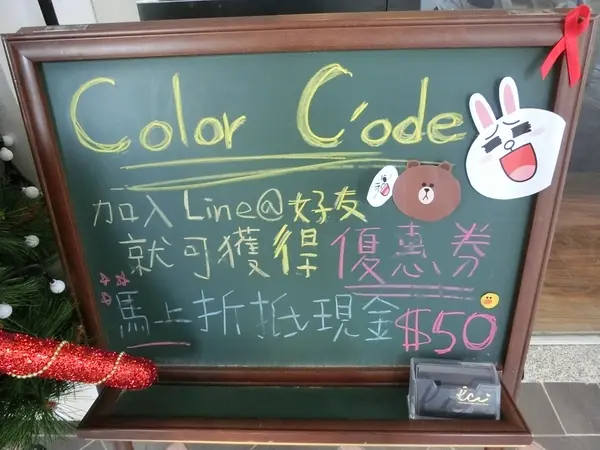 Color Code
加入Line@好友
就可獲得優惠券
馬上折抵現金$50